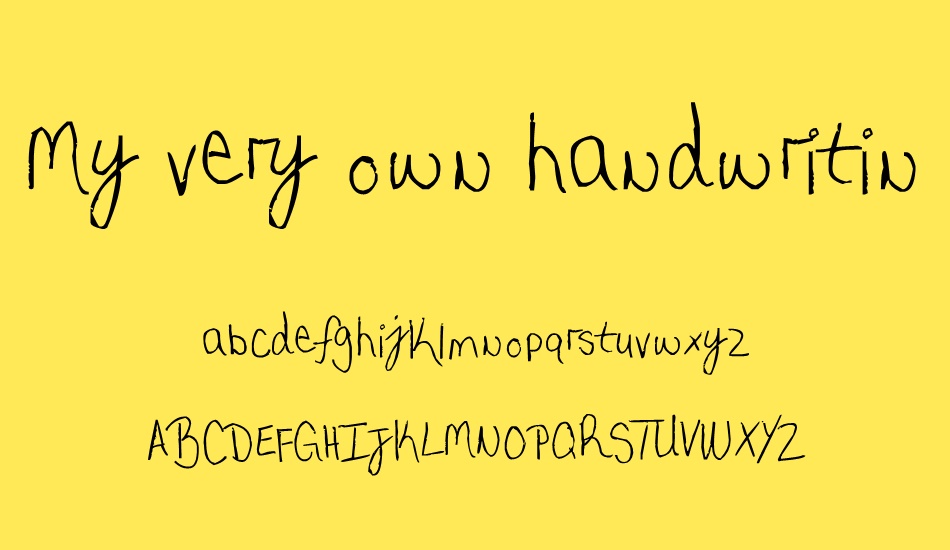 My very own handwritin
abcdefghijklmnopqrstuvwxyz
ABCDEFGHIJKLMNOPQRSTUVWXYZ